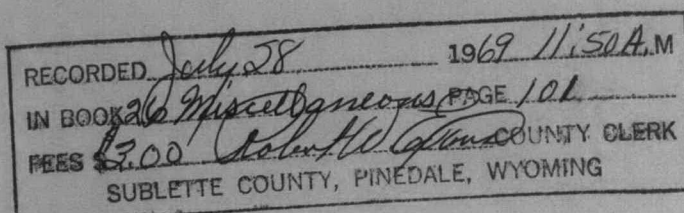 RECORDED July 28 1969 11:50 A.M
IN BOOK 26 Miscellaneous PAGE 101
FEES $2.00 Robert W COUNTY CLERK
SUBLETTE COUNTY, PINEDALE, WYOMING